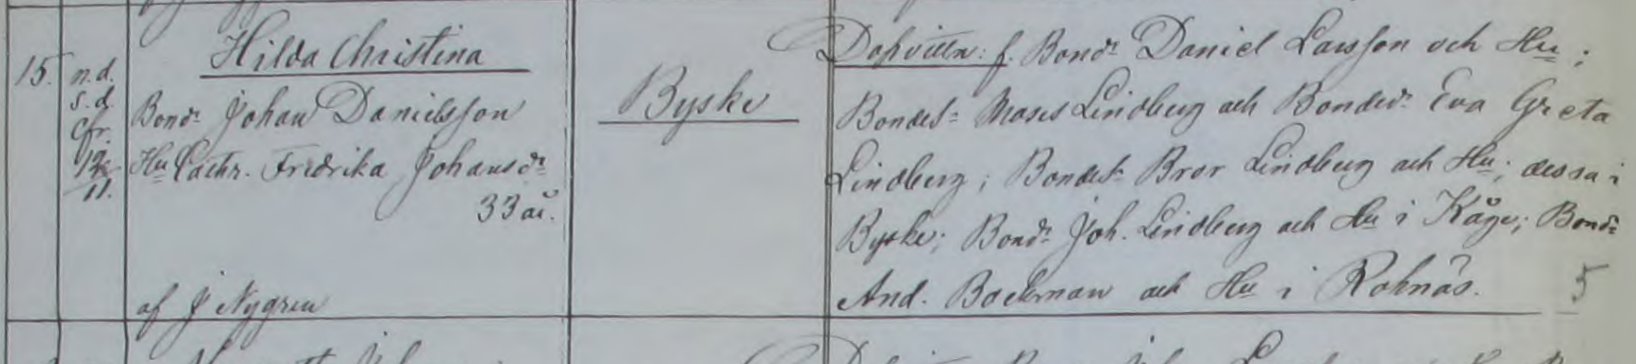 Hilda Christina
15.
n.d.
s.d.
Cfr.
12/11.
Bondn Johan Danielsson
Hu Cathr. Fredrika Johansdr
33 år.
af J Nygren
Byske
Dopvittn: f. Bondn Daniel Larsson och Hu;
Bondes: Moses Lindberg och Bonded: Eva Greta
Lindberg; Bondes: Bror Lindberg och Hu; dessa i
Byske; Bondn Joh. Lindberg och Hu i Kåge; Bondn
And. Boekman och Hu i Roknäs.
5